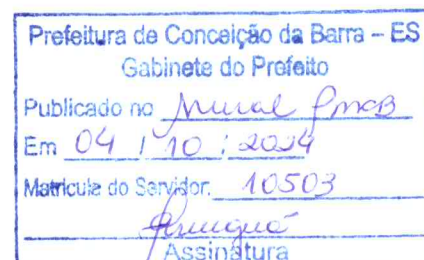 Prefeitura de Conceição da Barra – ES
Gabinete do Prefeito
Publicado no Mural PMCB
Em 04 / 10 / 2024
Matrícula do Servidor: 10503
Assinatura